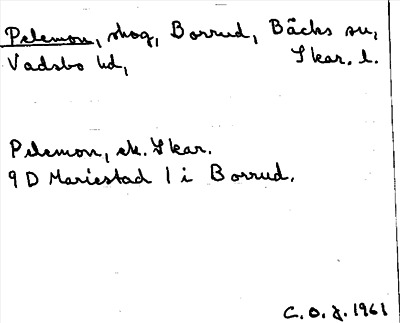 Pelemon, skog, Borrud, Bäcks sn,
Vadsbo hd, Skar. l.
Pelemon, ek. Skar.
9 D Mariestad 1 i Borrud.
C. O. J. 1961